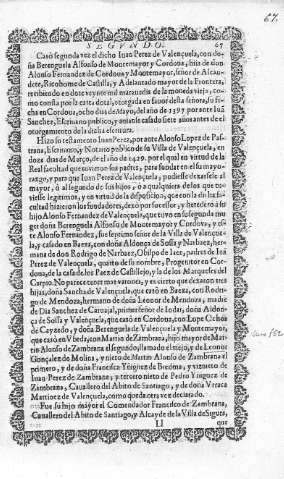 67.
SEGVNDO. 67
Casò segunda vez el dicho Iuan Perez de Valençuela, con do-
ña Berenguela Alfonso de Montemayor y Cordoua, hija de don
Alonso Fernandez de Cordoua y Montemayor, señor de Alcau-
dete, Ricohome de Castilla, y Adelantado mayor de la Frontera,
recibiendo en dote veynte mil marauedis de la moneda vieja, co-
mo consta por la carta dotal, otorgada en fauor desta señora, su fe-
cha en Cordoua, ocho dias de Mayo, del año de 1397 por ante Iuã
Sanchez, Escriuano publico, y auian se casado siete años antes de el
otorgamiento de la dicha escritura.
Hizo su testamento Iuan Perez, por ante Alonso Lopez de Pas-
trana, Escriuano, y Notario publico de su Villa de Valençuela, en
doze dias de Março, de el año de 1429. por el qual en virtud de la
Real facultad que tuuieron sus padres, para fundar en el su mayo-
razgo, y para que Iuan Perez de Valençuela, pudiesse dexarsele al
mayor, ò al segundo de sus hijos, ò a qualquiera de los que tu-
uiesse legitimos, y en virtud de la disposicion, que con la dicha fa-
cultad hizieron los fundadores, dexò por sucessor, y heredero à su
hijo Alonso Fernandez de Valençuela, que tuuo en su segunda mu-
ger doña Berenguela Alfonso de Montemayor y Cordoua, y es-
te Alonso Fernandez, fue septimo señor de la Villa de Valençue-
la, y casado en Baeza, con doña Aldonça de Sossa y Narbaez, her-
mana de don Rodrigo de Narbaez, Obispo de Iaen, padres de Iuã
Perez de Valençuela, quarto de su nombre, Progenitor en Cor-
doua, de la casa de los Paez de Castillejo, y la de los Marqueses del
Carpio. No parece tener mas varones, y es cierto que dexaron tres
hijas, doña Sancha de Valençuela, que casò en Baeza, con Rodri-
go de Mendoza, hermano de doña Leonor de Mendoza, madre
de Dia Sanchez de Caruajal, primer señor de Iodar, doña Aldon-
ça de Sossa y Valençuela, que casò en Cordoua, con Lope Ochoa
de Cayzedo, y doña Berenguela de Valençuela y Montemayor,
que casò en Vbeda, con Martin de Zambrana, hijo mayor de Mar-
tin Alonso de Zambrana el segundo, llamado el mozo, y de Leonor
Gonçalez de Molina, y nieto de Martin Alonso de Zambrana el
primero, y de doña Francisca Yñiguez de Bredma, y viznieto de
Iuan Perez de Zambrana, y tercero nieto de Pedro Yñiguez de
Zambrana, Cauallero del Abito de Santiago, y de doña Vrraca
Martinez de Valençuela, como queda otra vez declarado.
Fue su hijo mayor el Comendador Francisco de Zambrana,
Cauallero del Abito de Santiago, y Alcayde de la Villa de Segura,
Ll que